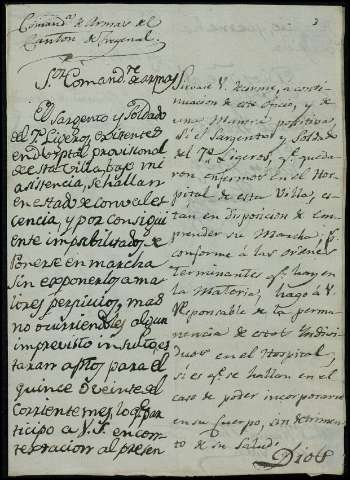 Comand.ª de Armas del
Canton de Fregenal.
S.or Comand.te de armas
El Sargento y Soldado
del 7.º Ligeros, existentes
en el Ospital provisional
de esta Villa, bajo mi
asistencia, se hallan
en estado de convales
cencia, y por consigui
ente imposibilitados, de
Ponerse en marcha
sin exponerlos a ma
iores perjuicios, mas
no ocurriendoles algun
imprevisto insulto es
taran aptos para el
quince ó veinte del
Corriente mes, lo q.e par
ticipo a V. S. en con
testacion al presen
Sirvase V. decirme, a conti
nuacion de este oficio, y de
una Manera positiva,
si el Sargento y Soldado
del 7.º Ligeros, q.e queda
ron enfermos en el Hos
pital de esta Villa, es
tan en disposicion de em
prender su Marcha; p.s
conforme á las ordenes
terminantes q.e hay en
la Materia, hago á V.
Responsable de la perma
nencia de estos Yndivi
duos en el Hospital,
si es q.e se hallan en el
caso de poder incorporarse
en su Cuerpo, sin detrimento
de su Salud.
Dios